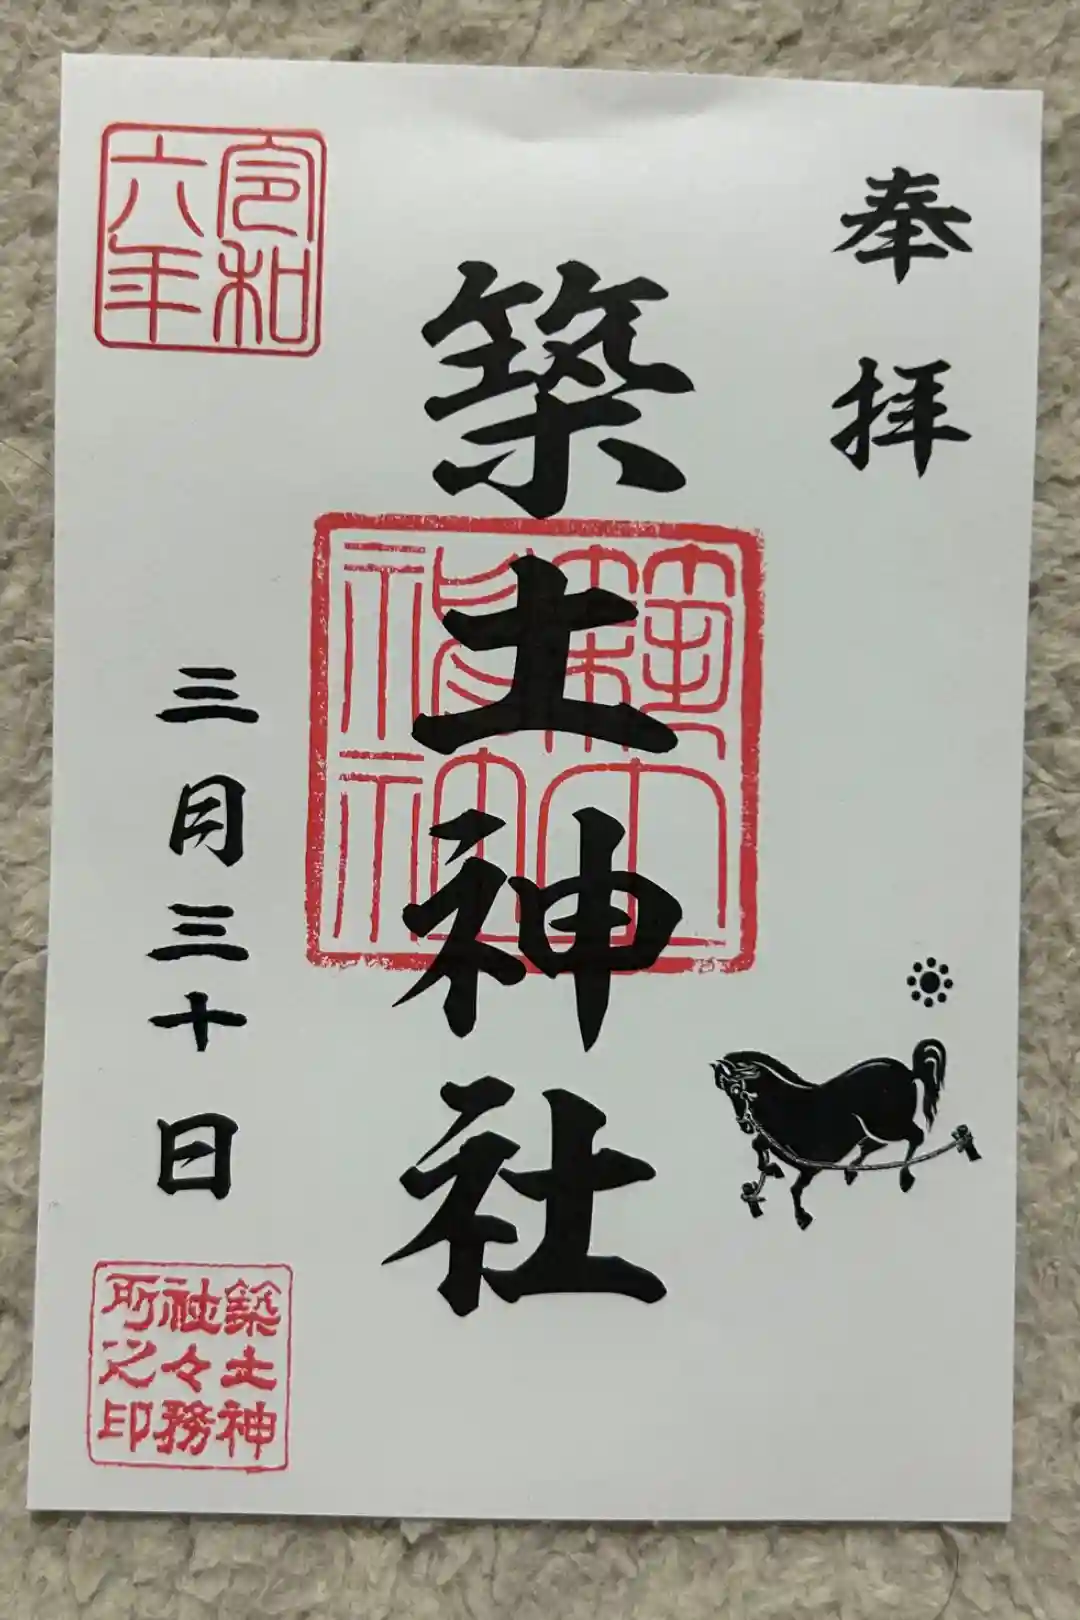 奉拝
築土神社
築土神社
令和六年
三月三十日
築土神
社々務
所之印